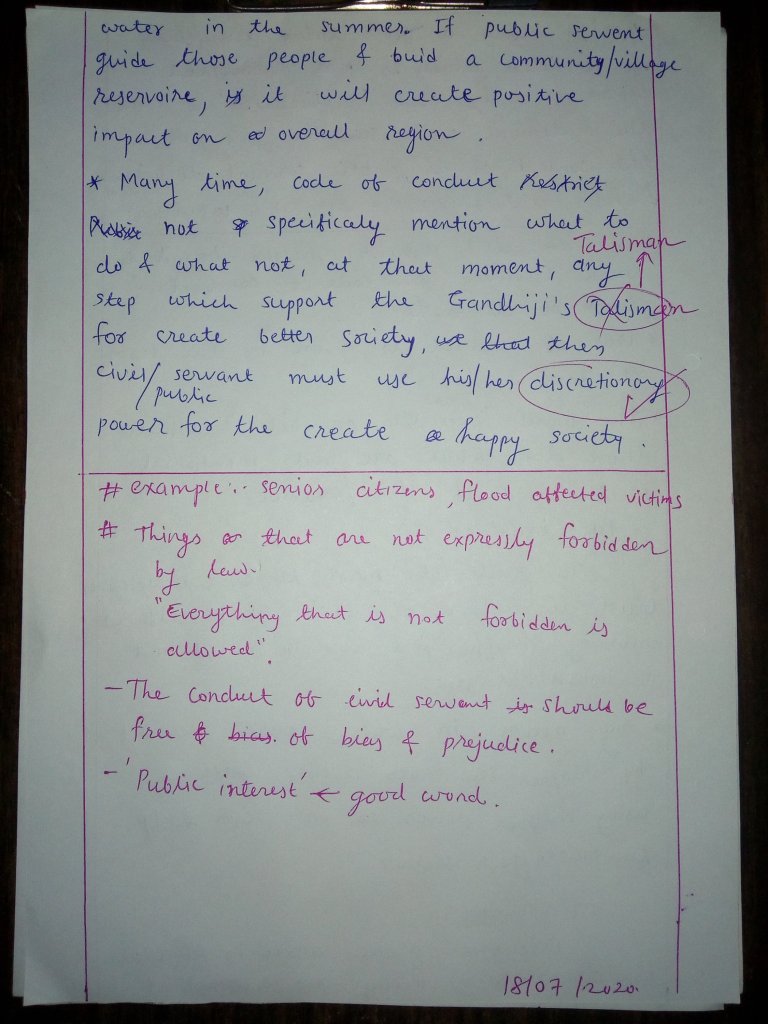 water in the summer. If public servent
guide those people & buid a community/village
reservoire, it will create positive
impact on overall region.
* Many time, code of conduct Restrict
not specificaly mention what to
Talisman
do & what not, at that moment, any
step which support the Gandhiji's Talisman
for create better society, use that then
civil/ servant must use his/her discretionary
public
power for the create happy society.
# example:- senior citizens, flood affected victims
# Things that are not expressly forbidden
by law.
"Everything that is not forbidden is
allowed".
- The conduct of civil servant is should be
free bias. of bias & prejudice.
- 'Public interest' ← good word.
18/07/2020.